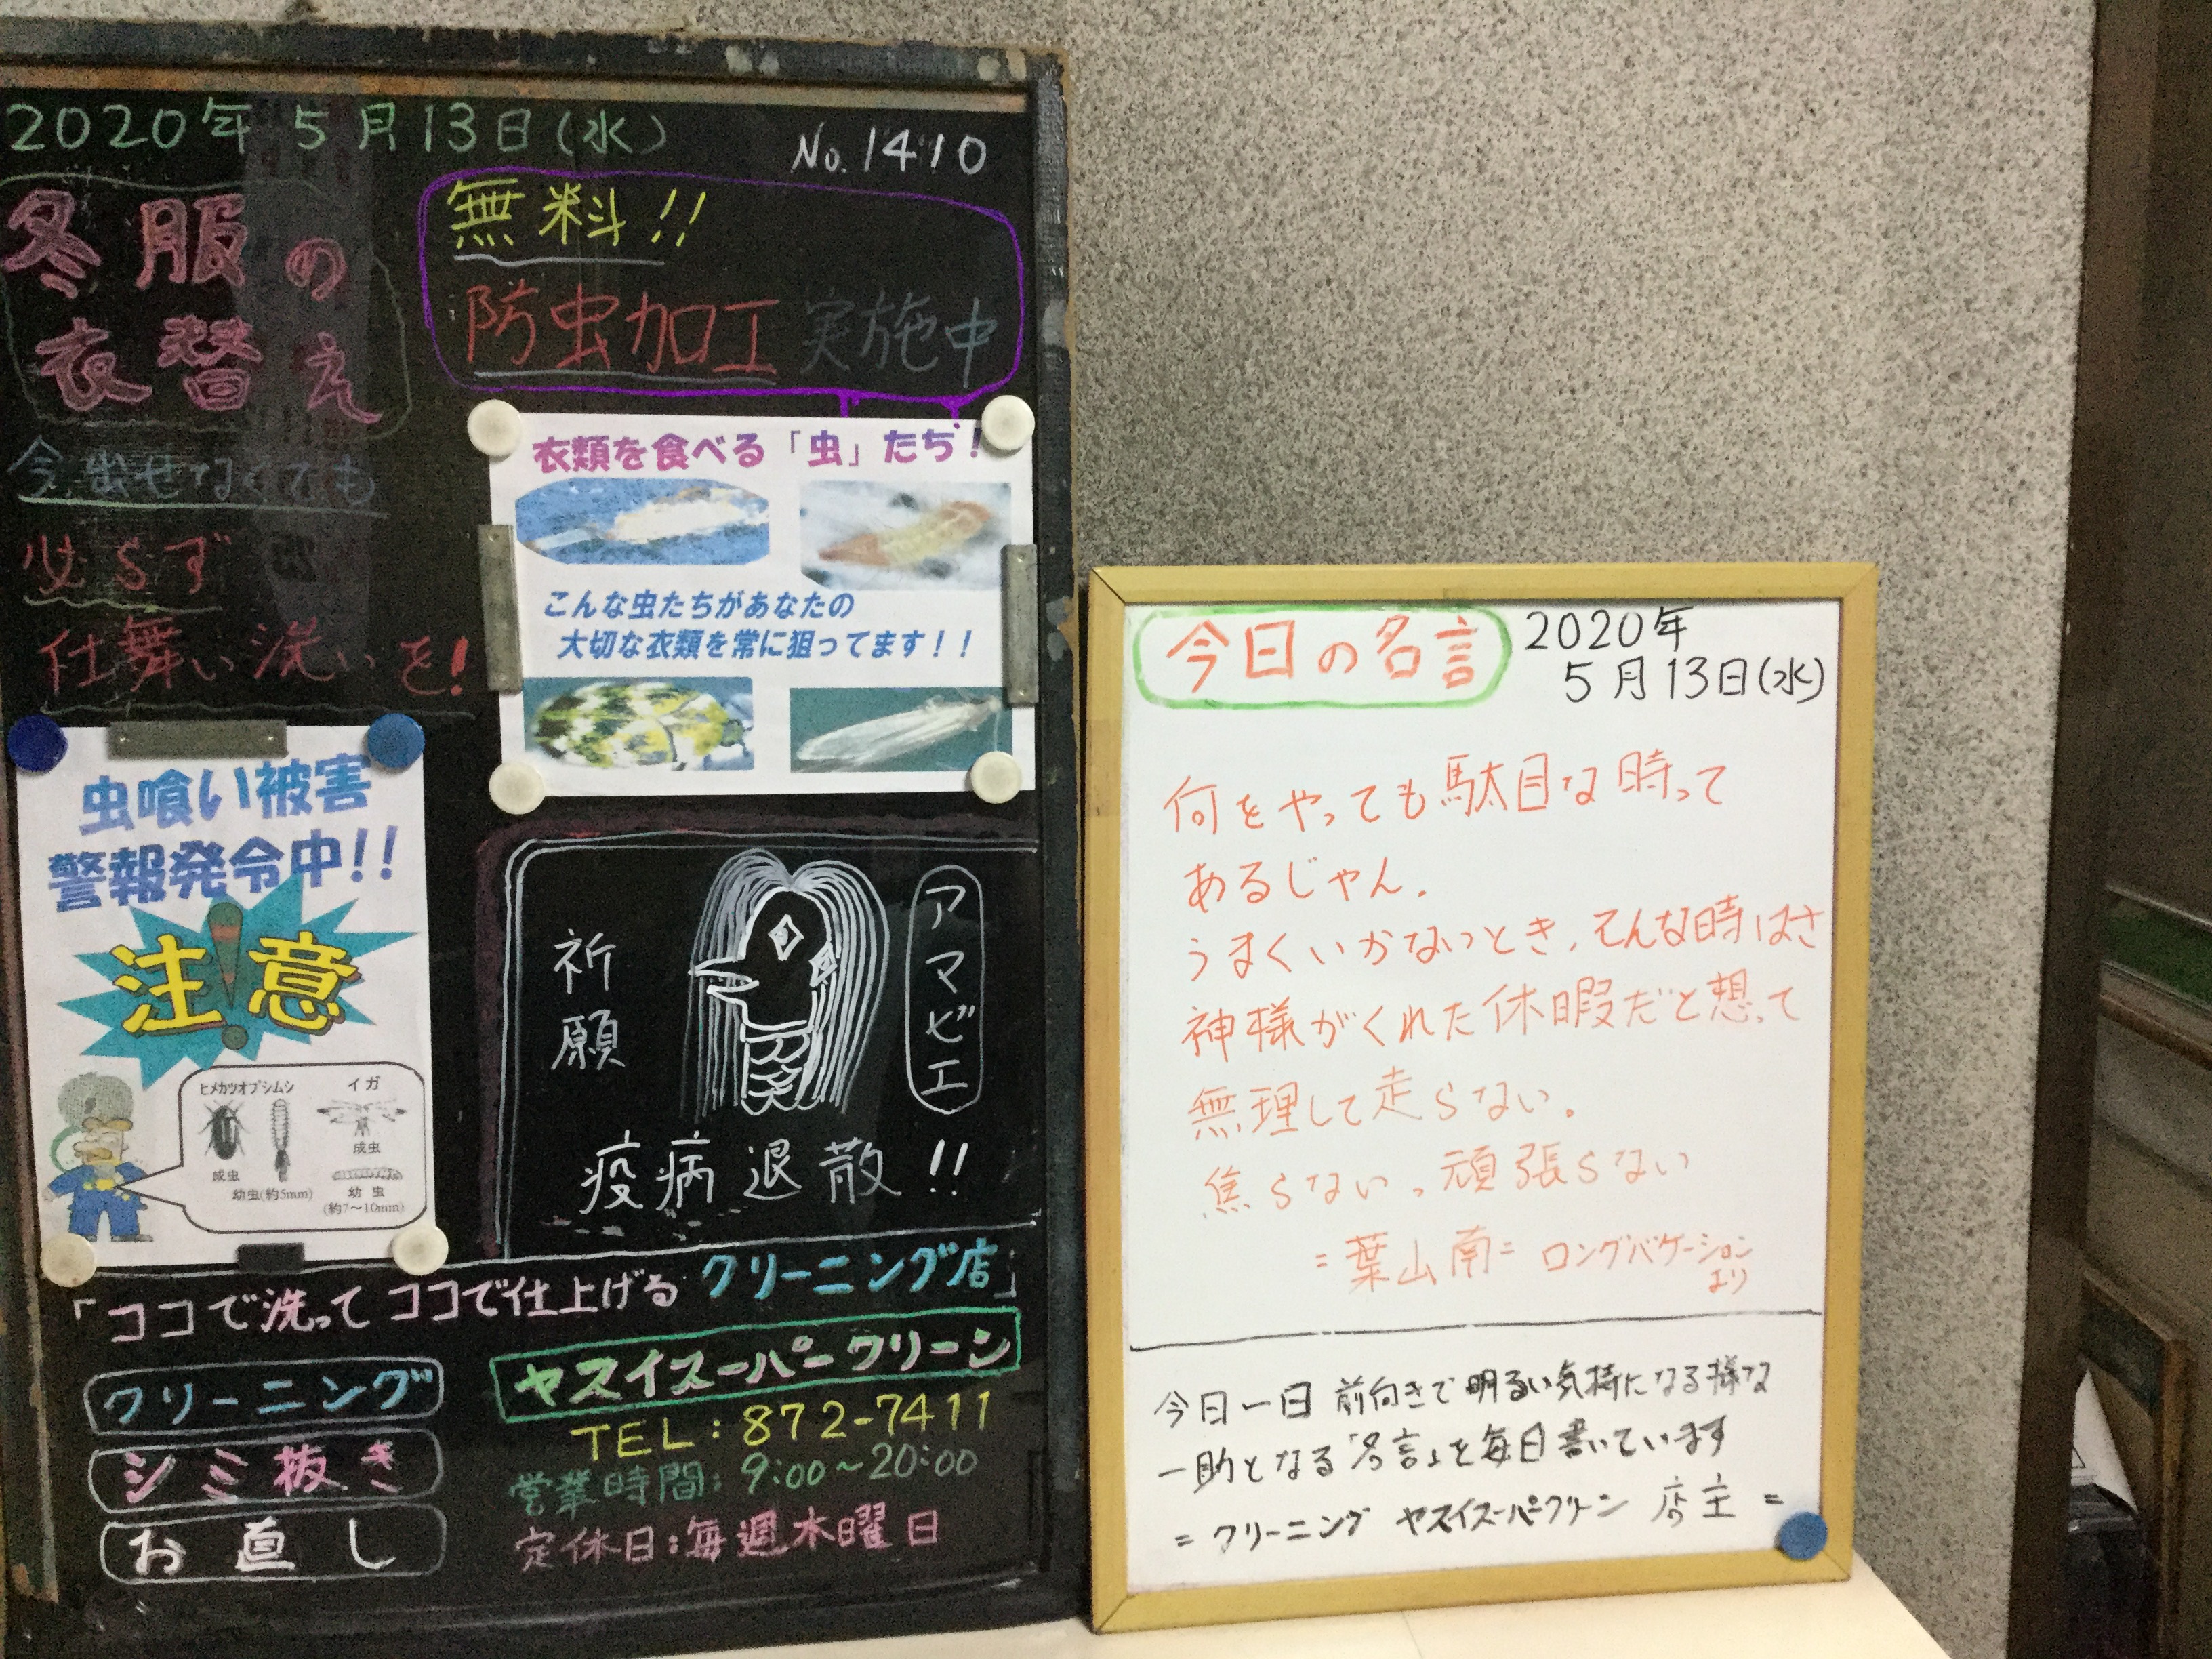 2020年 5月13日(水)
No.1410
冬服の
衣替え
今出せなくても
必らず
仕舞い洗いを!
無料!!
防虫加工 実施中
衣類を食べる「虫」たち!
こんな虫たちがあなたの
大切な衣類を常に狙ってます!!
虫喰い被害
警報発令中!!
注!意
ヒメカツオブシムシ
イガ
成虫
幼虫(約5mm)
成虫
幼虫
(約7~10mm)
祈願
アマビエ
疫病退散!!
「ココで洗って ココで仕上げる クリーニング店」
クリーニング
シミ抜き
お直し
ヤスイスーパークリーン
TEL:872-7411
営業時間:9:00~20:00
定休日:毎週木曜日
今日の名言
2020年
5月13日(水)
何をやっても駄目な時って
あるじゃん.
うまくいかないとき、そんな時はさ
神様がくれた休暇だと想って
無理して走らない。
焦らない。頑張らない
=葉山南= ロングバケーション
より
今日一日 前向きで明るい気持になる様な
一助となる「名言」を毎日書いています
=クリーニング ヤスイスーパークリーン 店主=